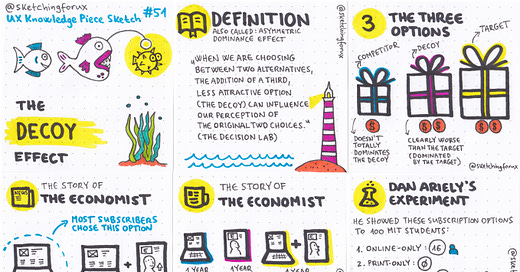 @sketchingforux
UX Knowledge Piece Sketch #51
THE
DECOY
EFFECT
DEFINITION
ALSO CALLED: ASYMMETRIC
DOMINANCE EFFECT
@sketchingforux
"WHEN WE ARE CHOOSING
BETWEEN TWO ALTERNATIVES,
THE ADDITION OF A THIRD,
LESS ATTRACTIVE OPTION
(THE DECOY) CAN INFLUENCE
OUR PERCEPTION OF
THE ORIGINAL TWO CHOICES."
(THE DECISION LAB)
3 THE THREE
OPTIONS
COMPETITOR
DECOY
TARGET
$
$ $
$ $
DOESN'T
TOTALLY
DOMINATES
THE DECOY
CLEARLY WORSE
THAN THE TARGET
(DOMINATED
BY THE TARGET)
@sketchingforux
NEWS
THE STORY OF
THE ECONOMIST
MOST SUBSCRIBERS
CHOSE THIS OPTION
THE STORY OF
THE ECONOMIST
+
1 YEAR
1 YEAR
1 YEAR
DAN ARIELY'S
EXPERIMENT
HE SHOWED THESE SUBSCRIPTION OPTIONS
TO 100 MIT STUDENTS:
1. ONLINE-ONLY: 16
2. PRINT-ONLY: 0